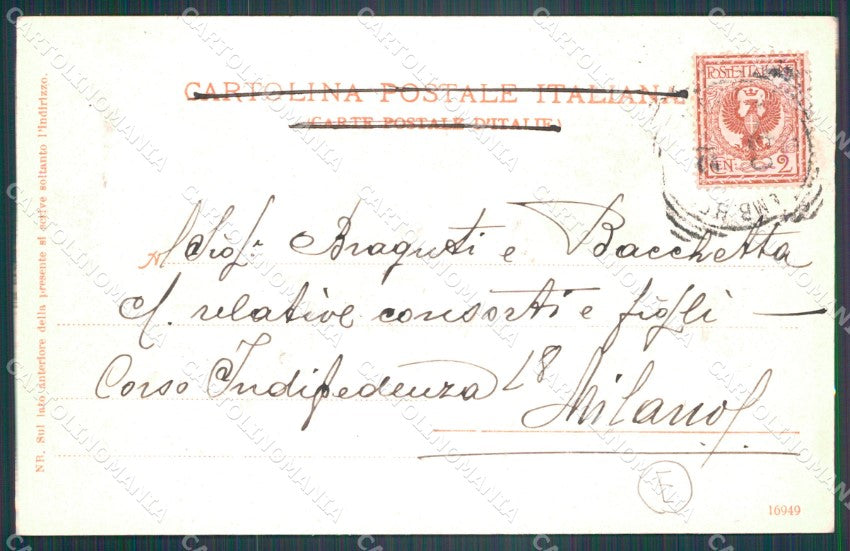 CARTOLINA POSTALE ITALIANA
(CARTE POSTALE D'ITALIE)
POSTE ITALIANE
CEN. 2
NB. Sul lato anteriore della presente si scrive soltanto l'indirizzo.
A Braguti e Bacchetta
relative consorti e figli —
Corso Indipedenza 18
Milano
16949
CARTOLINOMANIA